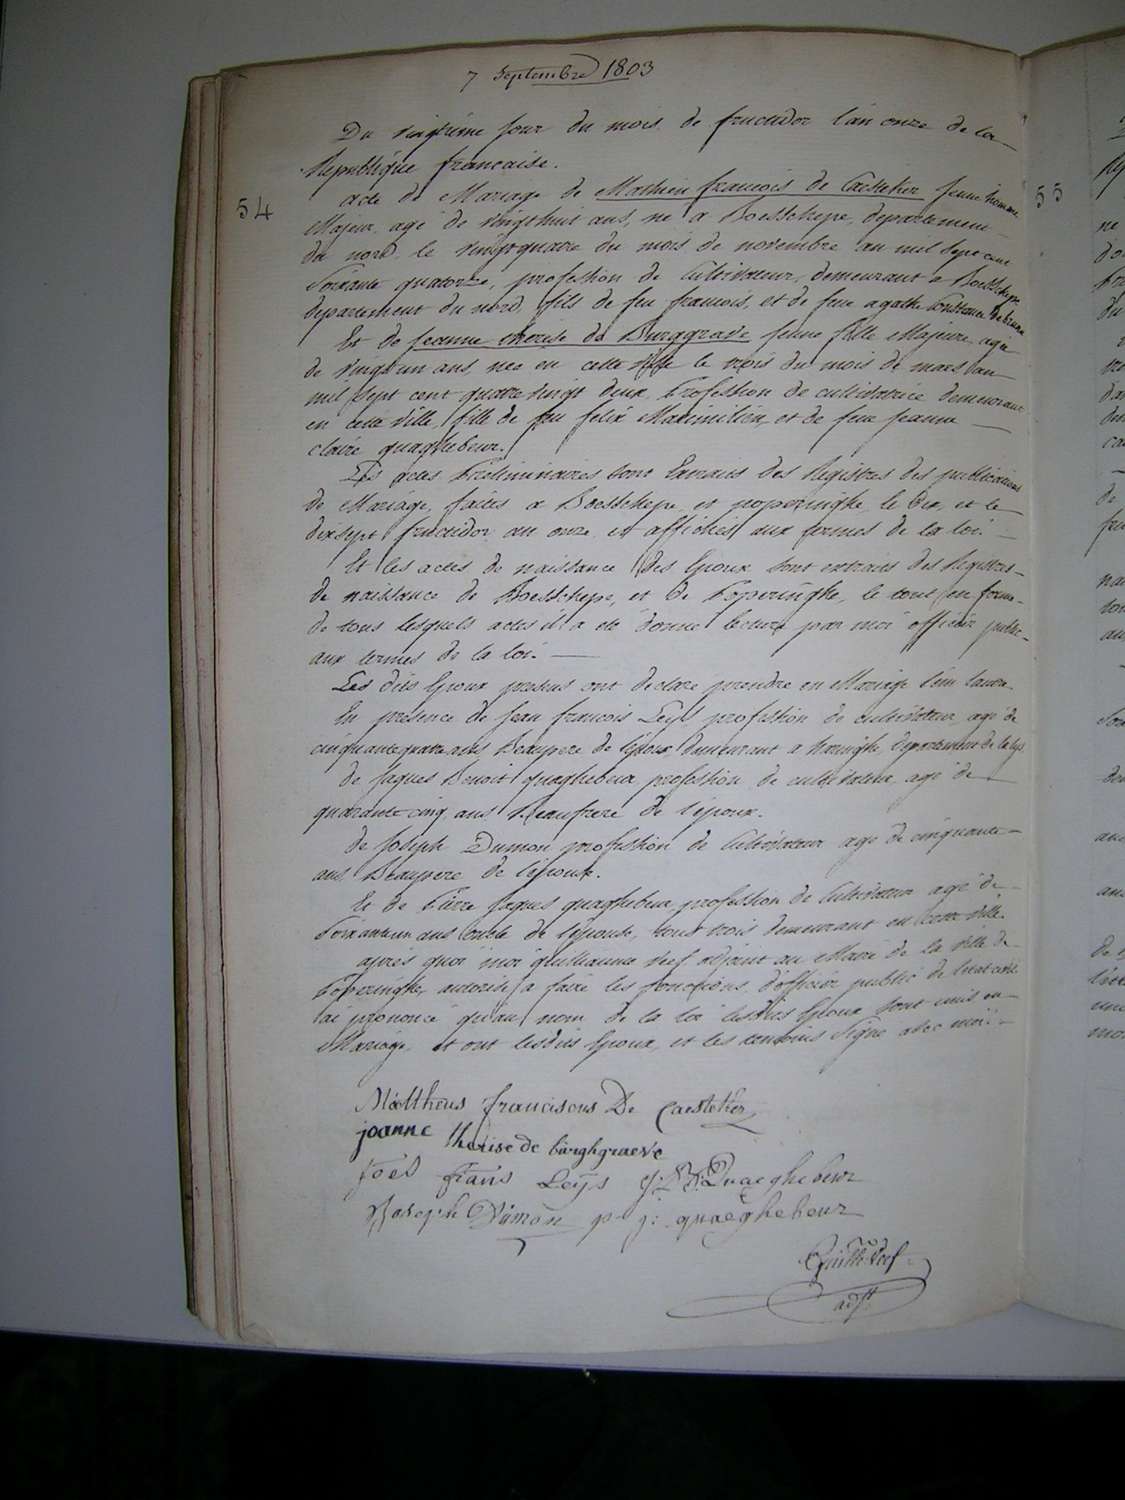 7 Septembre 1803
Du vingtième jour du mois de fructidor l'an onze de la
Republique francaise.
54
acte de Mariage de Mathieu francois de Caesteker jeune homme
Majeur, agé de vingthuit ans, né a Boesschepe, departement
du nord le vingtquatre du mois de novembre an mil sept cent
Soixante quatorze, profession de Cultivateur, demeurant a Boesschepe
departement du nord, fils de feu francois, et de feue agathe Constance
Et de jeanne therese de Burggrave jeune fille Majeure, agée
de vingt un ans née en cette ville le trois du mois de mars an
mil sept cent quatre vingt deux, Profession de cultivatrice demeurant
en cette ville, fille de feu felix Maximilien, et de feue jeanne
claire quaghebeur.
Les actes Preliminaires sont Extraits des Registres des publications
de Mariage, faites a Boesschepe et poperinghe le dix, et le
dixsept fructidor an onze et affichés aux termes de la loi.
Et les actes de naissance des Epoux sont extraits des Registres
de naissance de Boesschepe, et de Poperinghe, le tout en forme
de tous lesquels actes il a été donné lecture par moi officier public
aux termes de la loi.
Les dits Epoux presens ont declaré prendre en Mariage l'un lautre
En presence de jean francois Leys profession de cultivateur, agé de
cinquantequatre ans Beaupere de l'epoux demeurant a haringhe, departement de la lys
de jaques Benoit quaghebeur, profession de cultivateur, agé de
quarante cinq ans Beaufrere de l'epoux.
de joseph Dumon profession de Cultivateur agé de cinquante
ans Beaupere de l'epouse.
Et de Pierre jaques quaghebeur profession de Cultivateur agé de
Soixanteun ans oncle de l'epouse, tous trois demeurant en cette ville.
après quoi moi guillaume Neef adjoint au Maire de la ville de
Poperinghe, autorisé a faire les fonctions d'officier public de l'etat civil
ai prononcé qu'au nom de la loi lesdits Epoux sont unis en
Mariage, et ont lesdits Epoux, et les temoins Signé avec moi.
Mattheus franciscus De Caesteker
joanne therise de burghgraeve
joes frans Leijs J: B: Quaeghebeur
Joseph Dumon p j: quaeghebeur
Guille Neef
adjt
55